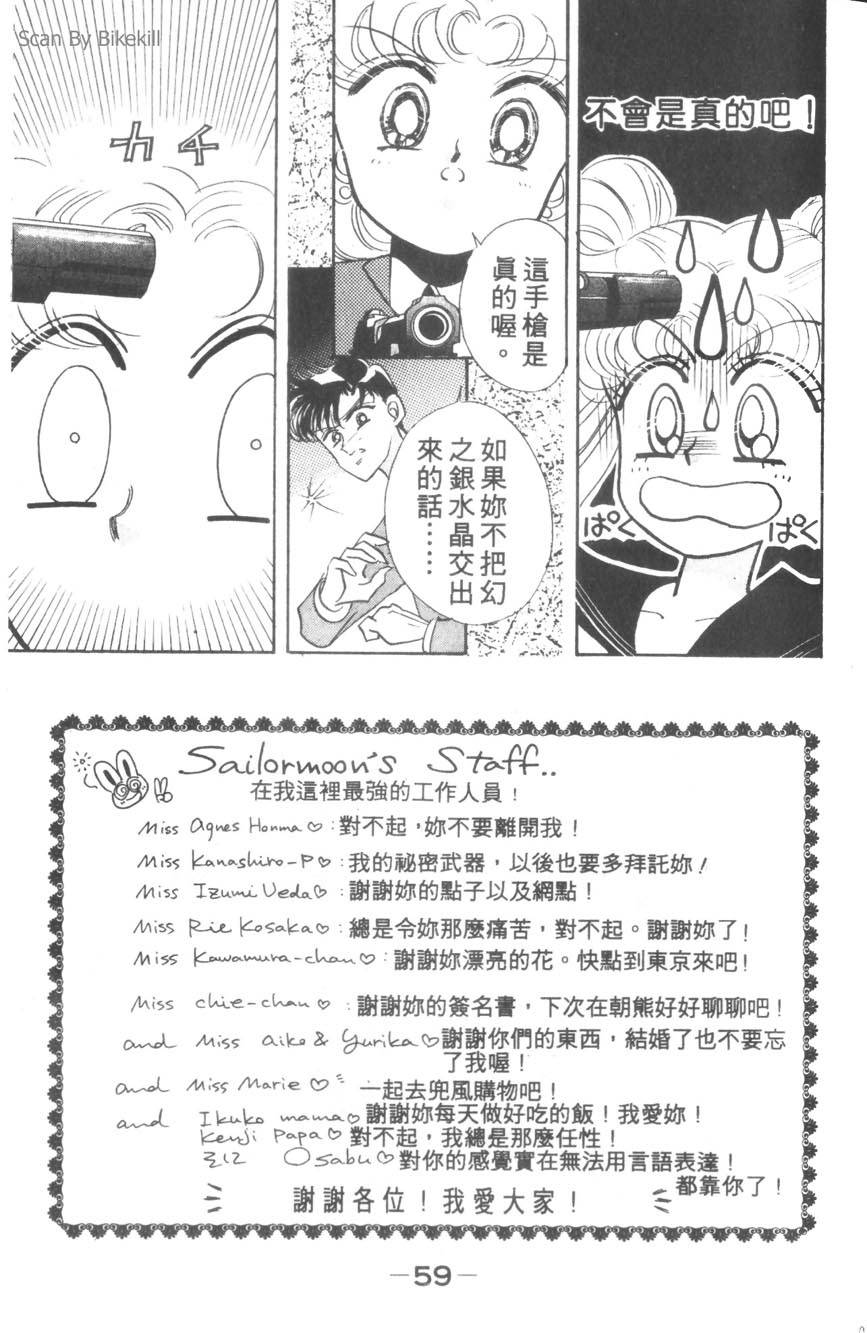 Scan By Bikekill
不會是真的吧！
ぱく
ぱく
這手槍是
眞的喔。
如果妳不把幻
之銀水晶交出
來的話……
カチ
Sailormoon's Staff..
在我這裡最強的工作人員！
Miss Agnes Honma♡：對不起，妳不要離開我！
Miss Kanashiro-P♡：我的祕密武器，以後也要多拜託妳！
Miss Izumi Ueda♡：謝謝妳的點子以及網點！
Miss Rie Kosaka♡：總是令妳那麼痛苦，對不起。謝謝妳了！
Miss Kawamura-chan♡：謝謝妳漂亮的花。快點到東京來吧！
Miss chie-chan♡：謝謝妳的簽名書，下次在朝熊好好聊聊吧！
and Miss aiko & Yurika♡謝謝你們的東西，結婚了也不要忘
了我喔！
and Miss Marie♡ 一起去兜風購物吧！
and Ikuko mama♡謝謝妳每天做好吃的飯！我愛妳！
Kenji Papa♡對不起，我總是那麼任性！
Osabu♡對你的感覺實在無法用言語表達！
都靠你了！
謝謝各位！我愛大家！
—59—